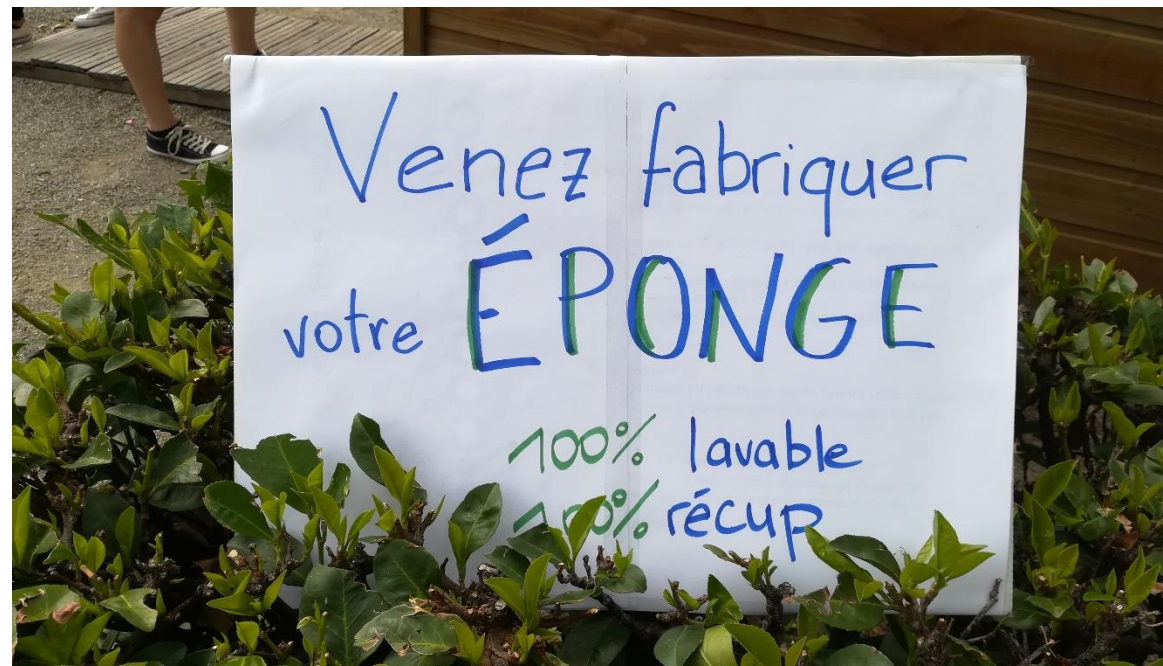 Venez fabriquer
votre ÉPONGE
100% lavable
100% récup